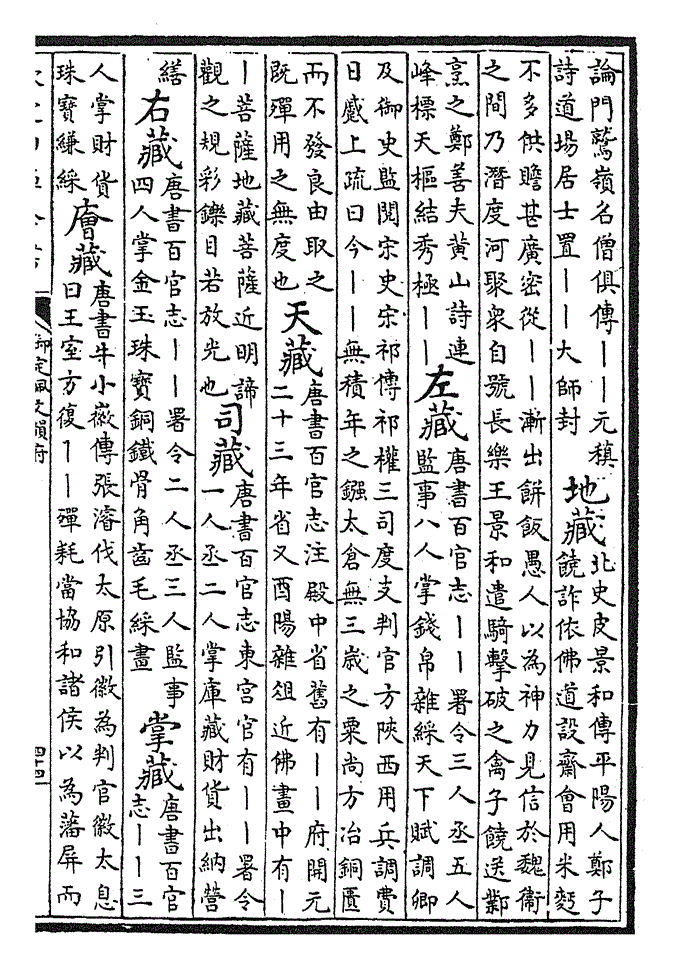 論門鷲嶺名僧俱傳——元稹
詩道場居士置——大師封
地藏
北史皮景和傳平陽人鄭子
饒詐依佛道設齋會用米麪
不多供贍甚廣密從——漸出餅飯愚人以為神力見信於魏衞
之間乃潛度河聚衆自號長樂王景和遣騎擊破之禽子饒送鄴
烹之鄭善夫黄山詩連
峰標天樞結秀極——
左藏
唐書百官志——署令三人丞五人
監事八人掌錢帛雜綵天下賦調卿
及御史監閱宋史宋祁傳祁權三司度支判官方陝西用兵調費
日慼上疏曰今——無積年之鏹太倉無三歲之粟尚方冶銅匱
而不發良由取之
既殫用之無度也
天藏
唐書百官志注殿中省舊有——府開元
二十三年省又酉陽雜俎近佛畫中有—
—菩薩地藏菩薩近明諦
觀之規彩鑠目若放光也
司藏
唐書百官志東宮官有——署令
一人丞二人掌庫藏財貨出納營
繕
右藏
唐書百官志——署令二人丞三人監事
四人掌金玉珠寶銅鐵骨角齒毛綵畫
掌藏
唐書百官
志——三
人掌財貨
珠寶縑綵
廥藏
唐書牛小徽傳張濬伐太原引徽為判官徽太息
曰王室方復——殫耗當協和諸侯以為藩屏而
御定佩文韻府
四十四